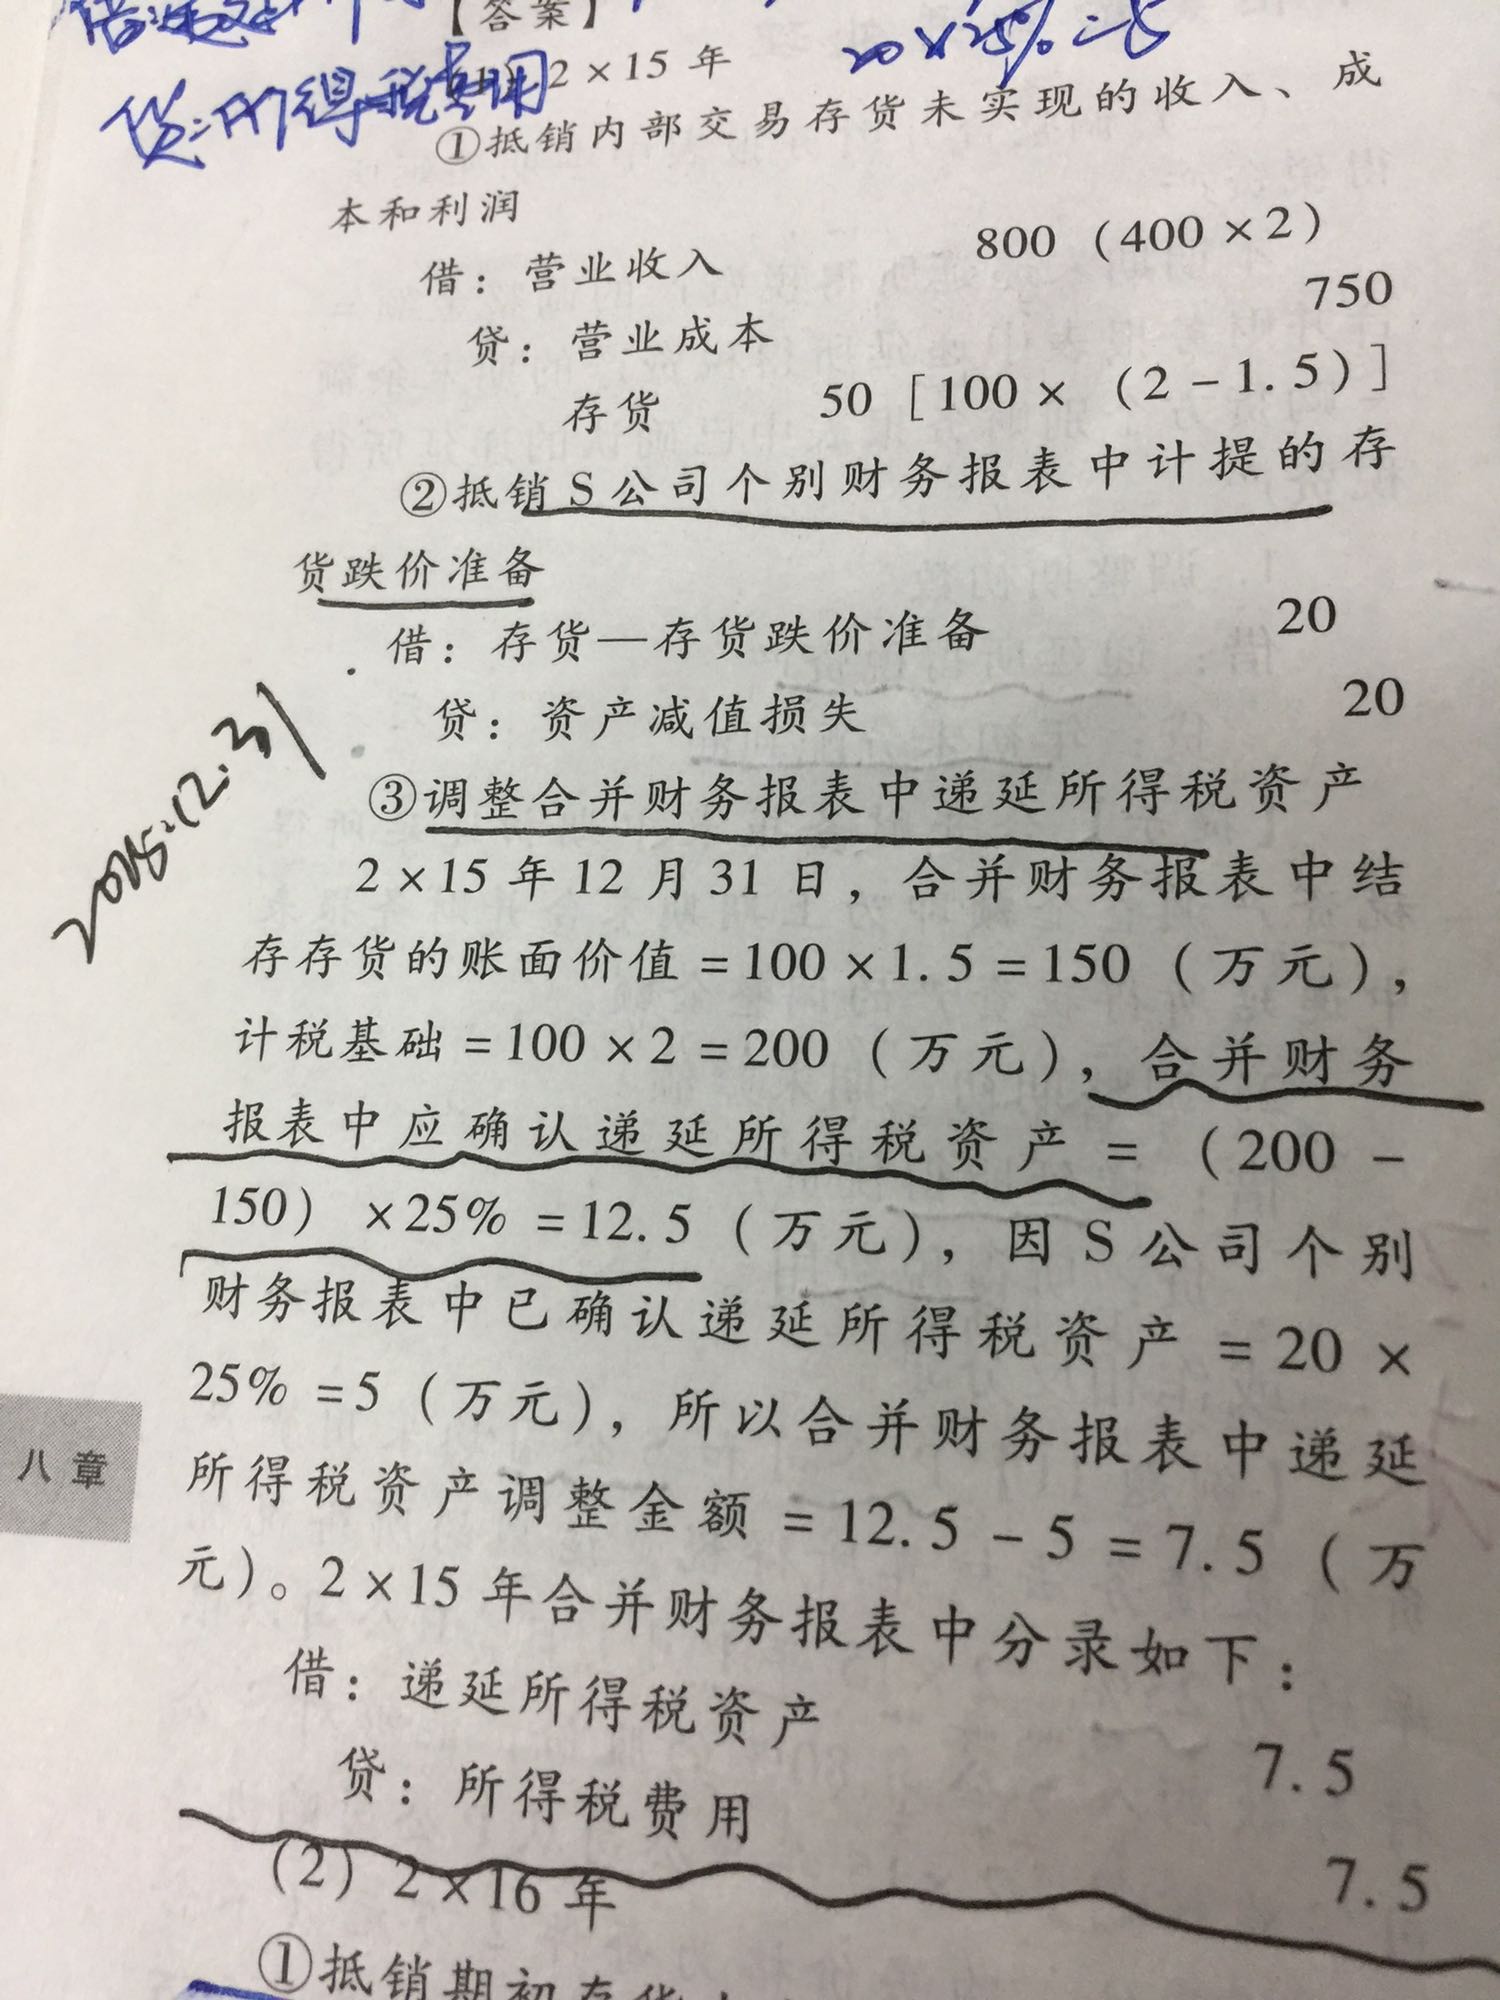 【答案】
20×25%=5
贷:所得税费用
(1) 2×15年
①抵销内部交易存货未实现的收入、成
本和利润
借：营业收入 800（400×2）
贷：营业成本 750
存货 50［100×（2－1.5）］
②抵销S公司个别财务报表中计提的存
货跌价准备
借：存货—存货跌价准备 20
贷：资产减值损失 20
2015.12.31
③调整合并财务报表中递延所得税资产
2×15年12月31日，合并财务报表中结
存存货的账面价值=100×1.5=150（万元），
计税基础=100×2=200（万元），合并财务
报表中应确认递延所得税资产=（200－
150）×25%=12.5（万元），因S公司个别
财务报表中已确认递延所得税资产=20×
25%=5（万元），所以合并财务报表中递延
所得税资产调整金额=12.5－5=7.5（万
元）。2×15年合并财务报表中分录如下：
借：递延所得税资产 7.5
贷：所得税费用 7.5
（2）2×16年
①抵销期初存货
八章